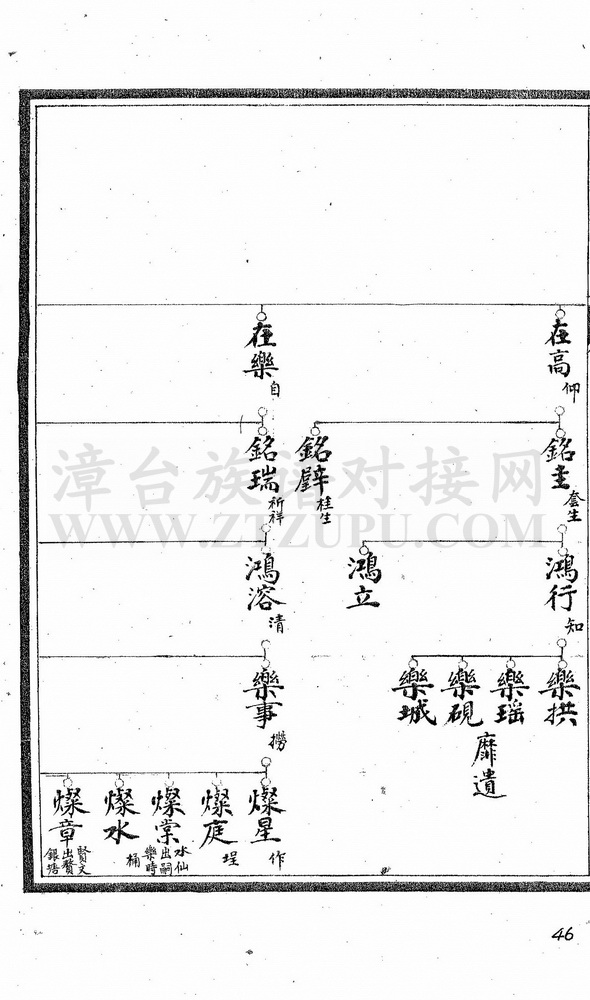 在高
仰
在樂
自
銘圭
套生
銘璧
桂生
銘瑞
祈祥
鴻行
知
鴻立
鴻溶
清
樂拱
樂瑶
樂硯
樂城
靡遺
樂事
撈
燦星
作
燦庭
埕
燦棠
水仙
出嗣
樂時
燦水
桶
燦章
賢文
出贅
銀塘
漳台族谱对接网
WWW.ZTZUPU.COM
46